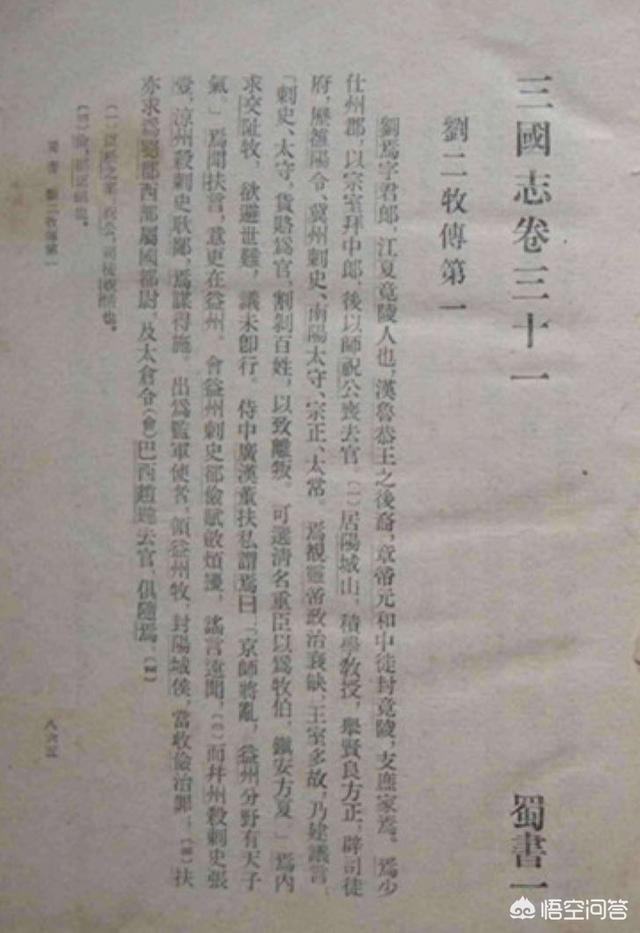 三國志卷三十一　蜀書一
劉二牧傳第一
劉焉字君郎，江夏竟陵人也，漢魯恭王之後裔，章帝元和中徙封竟陵，支庶家焉。焉少
仕州郡，以宗室拜中郎，後以師祝公喪去官。〔一〕居陽城山，積學教授，舉賢良方正，辟司徒
府，歷雒陽令、冀州刺史、南陽太守、宗正、太常。焉覩靈帝政治衰缺，王室多故，乃建議言：
「刺史、太守，貨賂爲官，割剥百姓，以致離叛。可選清名重臣以爲牧伯，鎮安方夏。」焉內
求交阯牧，欲避世難。議未即行，侍中廣漢董扶私謂焉曰：「京師將亂，益州分野有天子
氣。」焉聞扶言，意更在益州。會益州刺史郤儉賦斂煩擾，謠言遠聞，而并州殺刺史張
壹，涼州殺刺史耿鄙，焉謀得施。出爲監軍使者，領益州牧，封陽城侯，當收儉治罪；扶
亦求爲蜀郡西部屬國都尉，及太倉令巴西趙韙去官，俱隨焉。
蜀書　劉二牧傳第一　八六五
悟空问答